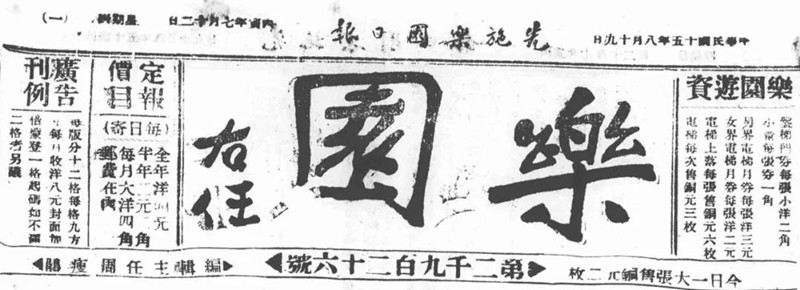 中華民國十五年八月十九日
先施樂園日報
丙寅年七月十二日
星期
(一)
樂園遊資
梯門券每張小洋二角
小童每張券一角
男界電梯月券每張洋三元
女界電梯月券每張洋二元
電梯上落每張售銅元六枚
電梯每次售銅元三枚
樂園
右任
定報價目
(每日寄)
全年洋四元
半年二元 角
每月大洋四角
郵費在內
廣告刊例
每版分十二格每格九方
寸每月收洋八元封面加
倍 登一格起碼如不滿
一格者另議
今日一大張售銅元二枚
第二千九百二十六號
編輯主任周瘦鵑